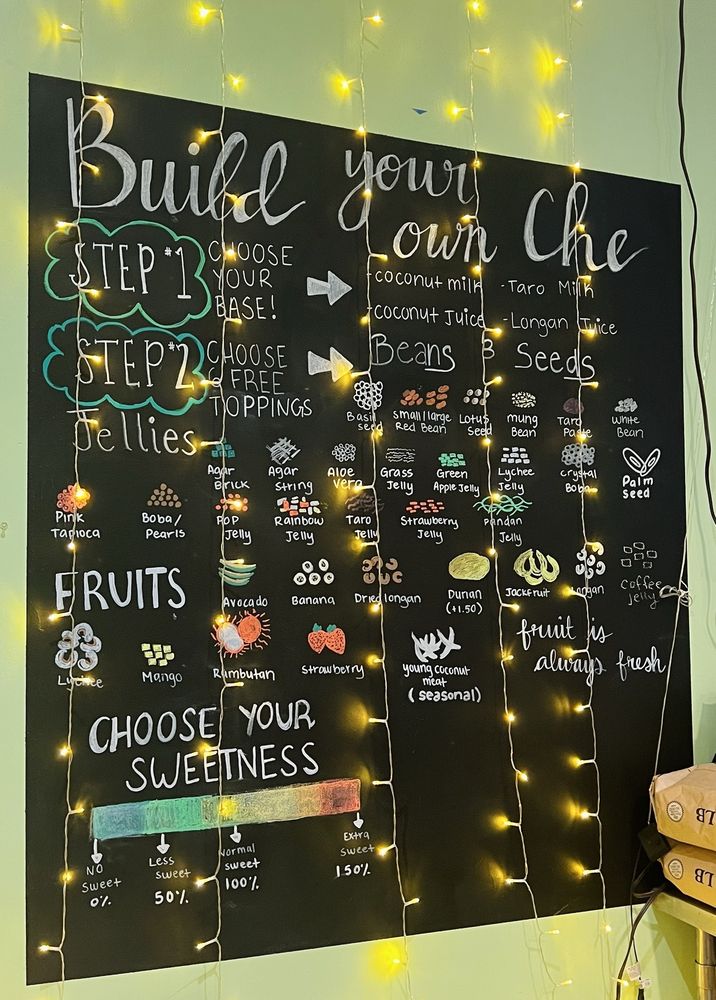 Build your
own Che
STEP #1
CHOOSE
YOUR
BASE!
-coconut milk
-Taro Milk
-coconut Juice
-Longan Juice
STEP #2
CHOOSE
6 FREE
TOPPINGS
Beans & Seeds
Basil
seed
small/large
Red Bean
Lotus
Seed
mung
Bean
Taro
Paste
White
Bean
Jellies
Agar
Brick
Agar
String
Aloe
Vera
Grass
Jelly
Green
Apple Jelly
Lychee
Jelly
crystal
Boba
Palm
Seed
Pink
Tapioca
Boba/
Pearls
POP
Jelly
Rainbow
Jelly
Taro
Jelly
Strawberry
Jelly
Pandan
Jelly
Coffee
jelly
FRUITS
Avocado
Banana
Dried longan
Durian
(+1.50)
Jackfruit
Longan
Lychee
Mango
Rambutan
Strawberry
young coconut
meat
(seasonal)
fruit is
always fresh
CHOOSE YOUR
SWEETNESS
NO
Sweet
0%
Less
sweet
50%
Normal
sweet
100%
Extra
sweet
150%
LB
LB